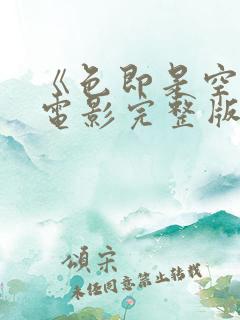 《色即是空
電影完整版
頌宋
未经同意禁止转载